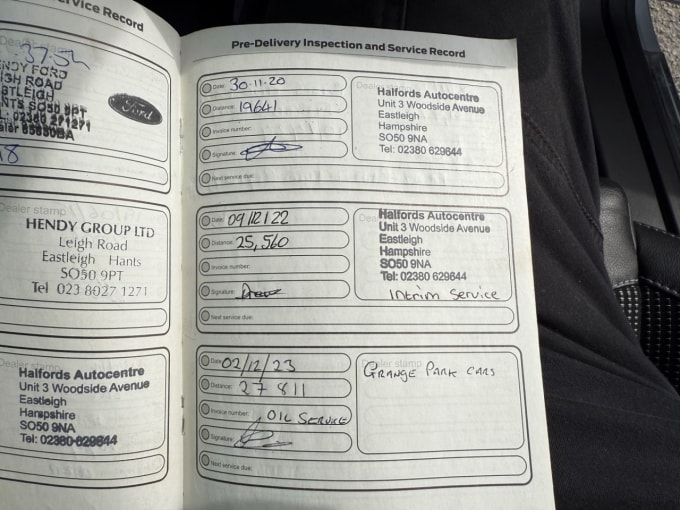 ervice Record
37.5h
NDY FORD
IGH ROAD
STLEIGH
NTS SO50 9PT
02380 271271
Ford
HENDY GROUP LTD
Leigh Road
Eastleigh Hants
SO50 9PT
Tel 023 8027 1271
Halfords Autocentre
Unit 3 Woodside Avenue
Eastleigh
Hampshire
SO50 9NA
Tel: 02380 629644
Pre-Delivery Inspection and Service Record
Date: 30-11-20
Distance: 19641
Invoice number:
Signature:
Next service due:
Halfords Autocentre
Unit 3 Woodside Avenue
Eastleigh
Hampshire
SO50 9NA
Tel: 02380 629644
Date: 09/12/22
Distance: 25,560
Invoice number:
Signature:
Next service due:
Halfords Autocentre
Unit 3 Woodside Avenue
Eastleigh
Hampshire
SO50 9NA
Tel: 02380 629644
Interim Service
Date: 02/12/23
Distance: 27811
Invoice number: OIL SERVICE
Signature:
Next service due:
Dealer stamp
GRANGE PARK CARS